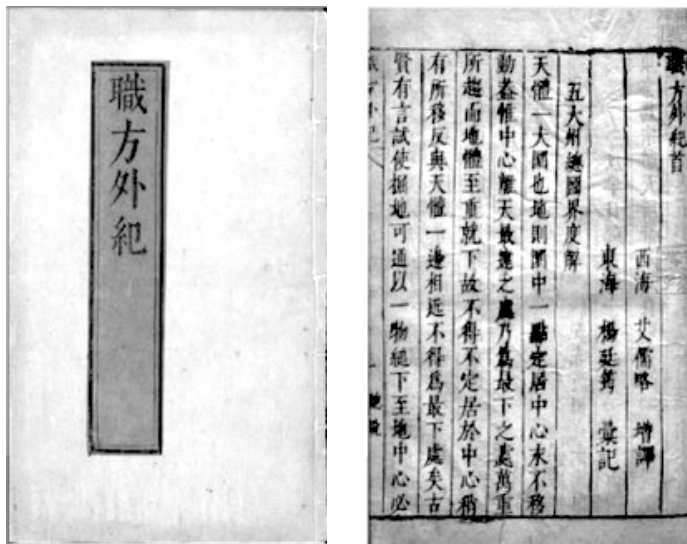 職方外紀
職方外紀首
西海 艾儒略 增譯
東海 楊廷筠 彙記
五大州總圖界度解
天體一大圜也地則圜中一點定居中心永不移
動蓋惟中心離天最遠之處乃爲最下之處萬重
所趨而地體至重就下故不得不定居於中心稍
有所移反與天體一邊相近不得爲最下處矣古
賢有言試使掘地可通以一物縋下至地中心必